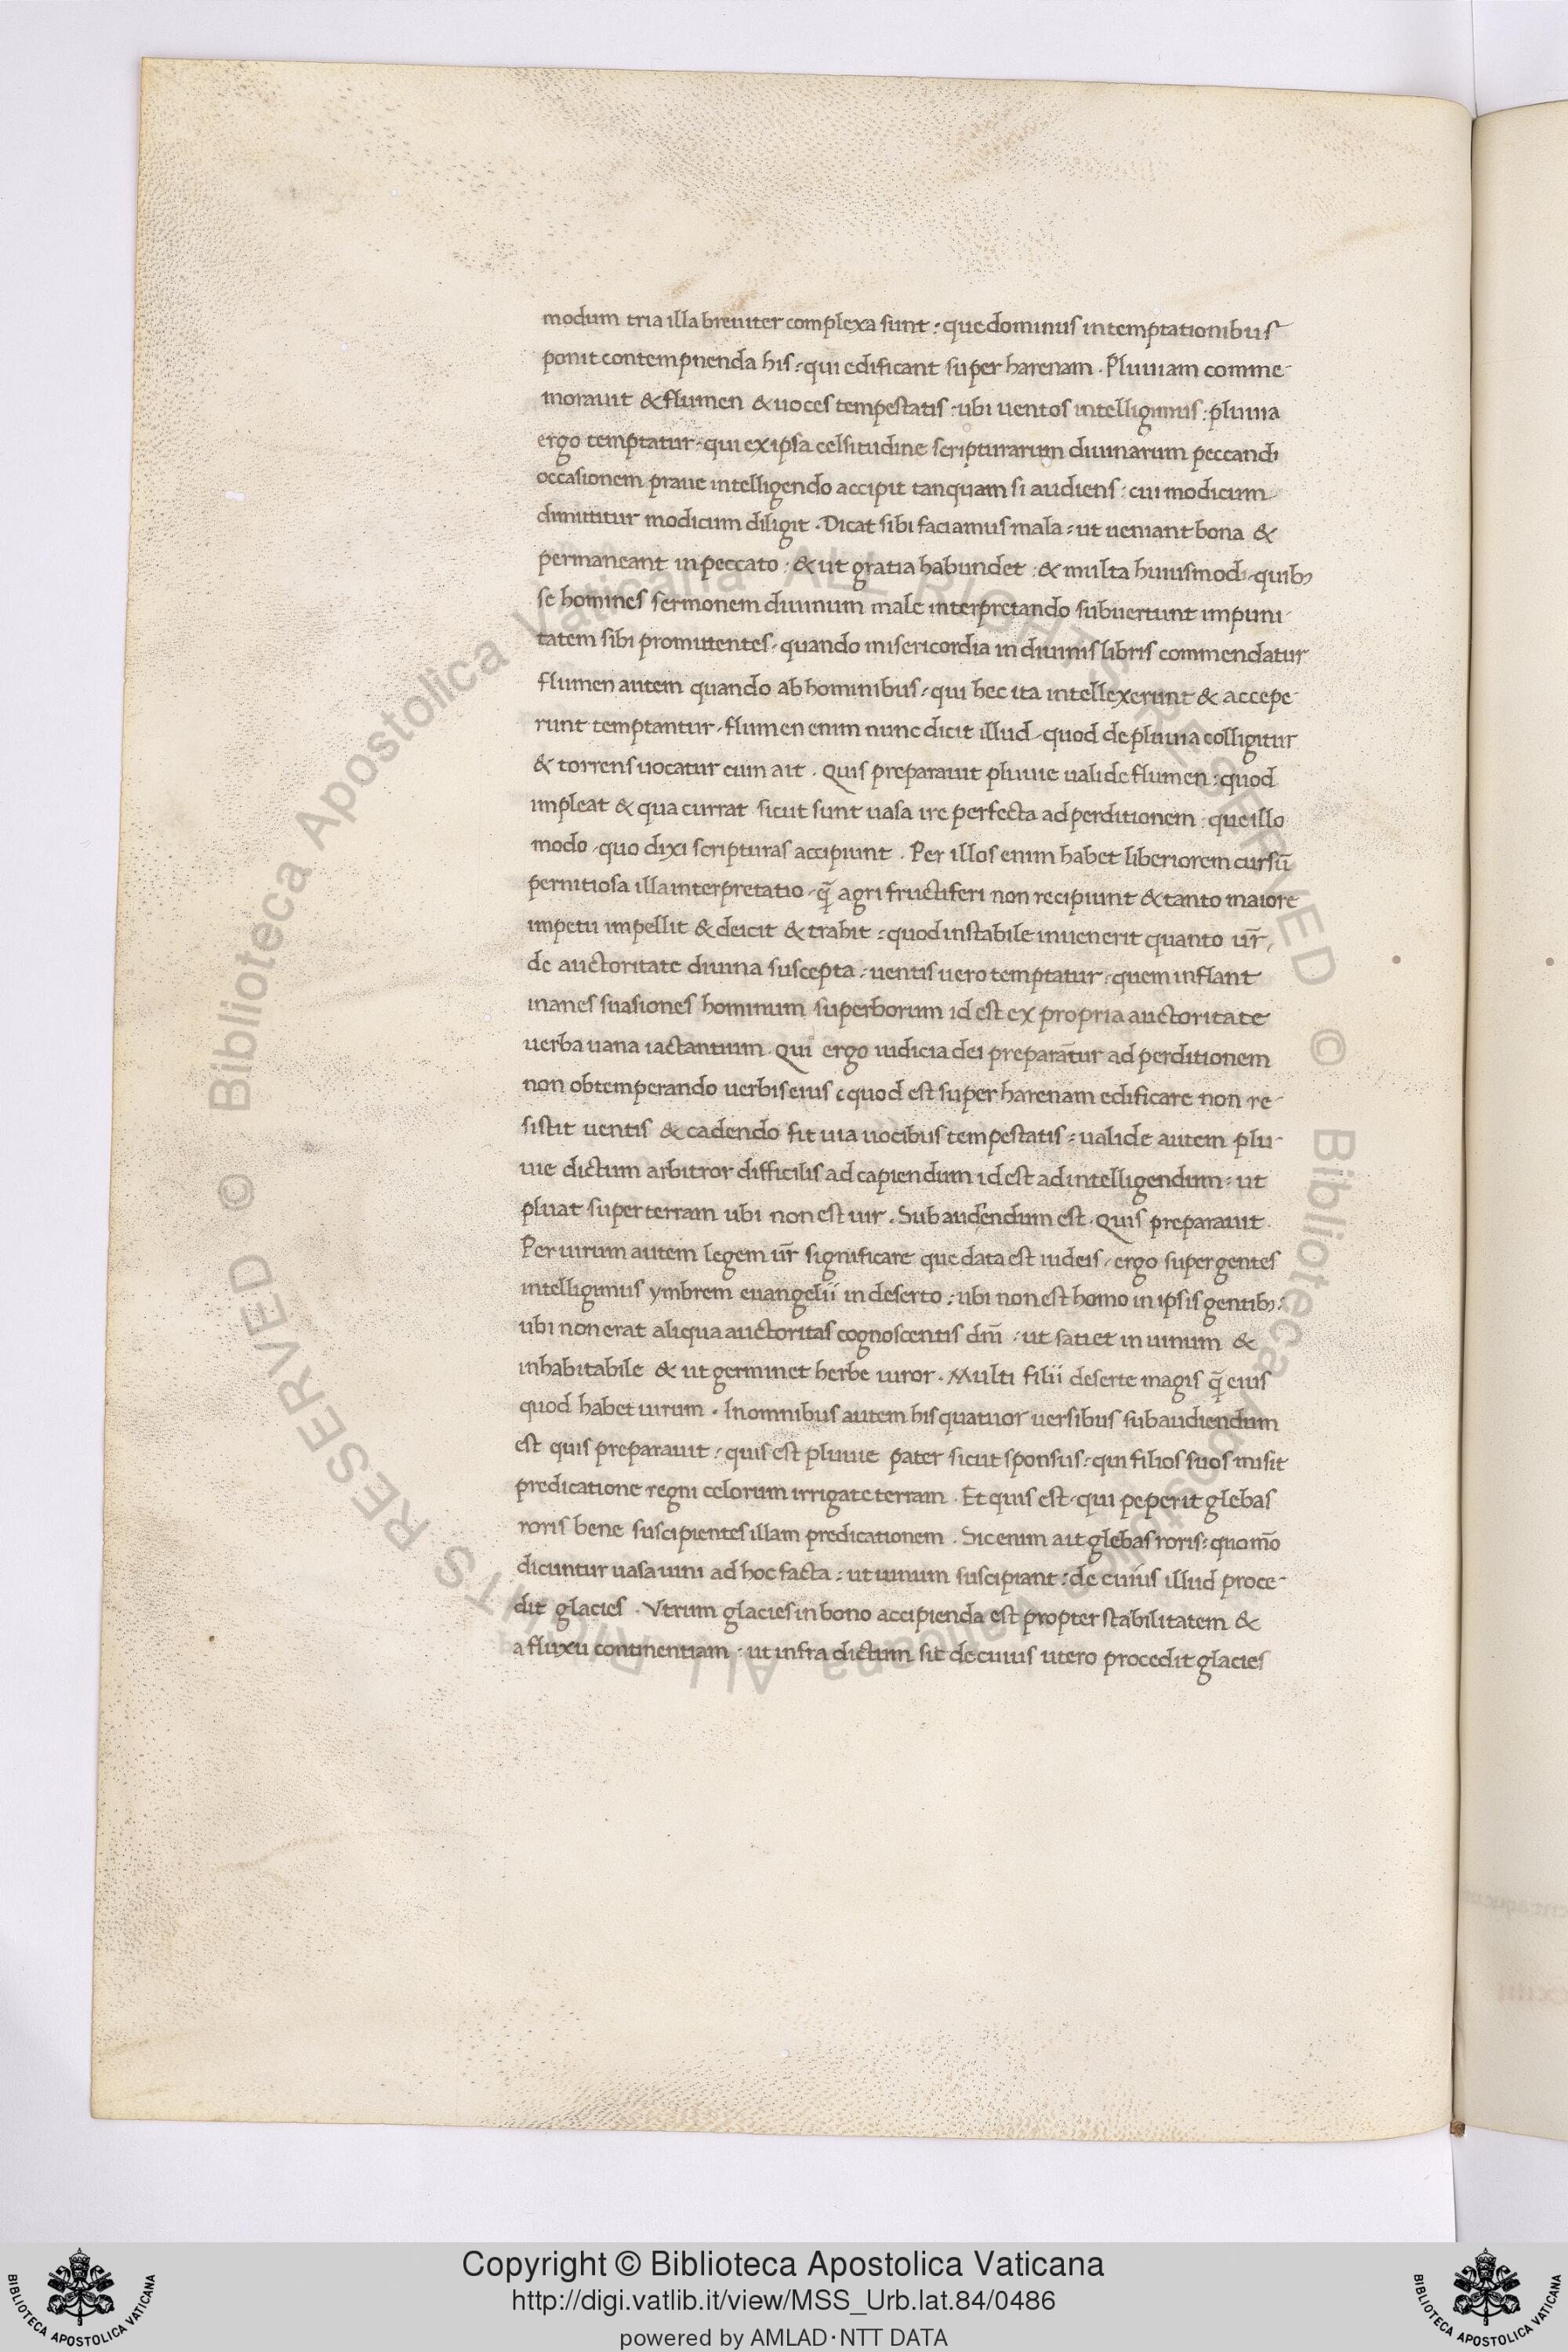 modum tria illa breuiter complexa sunt : que dominus in temptationibus
ponit contempnenda his : qui edificant super harenam . Pluuiam comme-
morauit & flumen & uoces tempestatis : ubi uentos intelligimus : pluuia
ergo temptatur : qui ex ipsa celsitudine scripturarum diuinarum peccandi
occasionem praue intelligendo accipit tanquam si audiens : cui modicum
dimittitur modicum diligit . Dicat sibi faciamus mala : ut ueniant bona &
permaneant in peccato : & ut gratia habundet : & multa huiusmodi : quibꝫ
se homines sermonem diuinum male interpretando subuertunt impuni-
tatem sibi promittentes : quando misericordia in diuinis libris commendatur
flumen autem quando ab hominibus : qui hec ita intellexerunt & accepe-
runt temptantur : flumen enim nunc dicit illud : quod de pluuia colligitur
& torrens uocatur cum ait . Quis preparauit pluuie ualide flumen : quod
impleat & qua currat sicut sunt uasa ire perfecta ad perditionem : que illo
modo : quo dixi scripturas accipiunt . Per illos enim habet liberiorem cursū
pernitiosa illa interpretatio : q̄ agri fructiferi non recipiunt & tanto maiore
impetu impellit & deicit & trahit : quod instabile inuenerit quanto ur̄
de auctoritate diuina suscepta : uentis uero temptatur : quem inflant
inanes suasiones hominum superborum id est ex propria auctoritate
uerba uana iactantium . Qui ergo iudicia dei preparātur ad perditionem
non obtemperando uerbis eius : quod est super harenam edificare non re-
sistit uentis & cadendo fit uia uocibus tempestatis : ualide autem plu-
uie dictum arbitror difficilis ad capiendum id est ad intelligendum : ut
pluat super terram ubi non est uir . Subaudendum est . Quis preparauit .
Per uirum autem legem ur̄ significare que data est iudeis : ergo super gentes
intelligimus ymbrem euangelii in deserto : ubi non est homo in ipsis gentibꝫ :
ubi non erat aliqua auctoritas cognoscentis dm̄ : ut satiet in uinum &
inhabitabile & ut germinet herbe uiror . Multi filii deserte magis q̄ eius
quod habet uirum . In omnibus autem his quatuor uersibus subaudiendum
est quis preparauit : quis est pluuie pater sicut sponsus : qui filios suos misit
predicatione regni celorum irrigate terram . Et quis est : qui peperit glebas
roris bene suscipientes illam predicationem . Sic enim ait glebas roris : quomō
dicuntur uasa uini ad hoc facta : ut uinum suscipiant : de cuius illud proce-
dit glacies . Vtrum glacies in bono accipienda est propter stabilitatem &
a fluxu continentiam : ut infra dictum sit de cuius utero procedit glacies
© Biblioteca Apostolica Vaticana ALL RIGHTS RESERVED © Biblioteca Apostolica Vaticana ALL RIGHTS RESERVED
Copyright © Biblioteca Apostolica Vaticana
http://digi.vatlib.it/view/MSS_Urb.lat.84/0486
powered by AMLAD·NTT DATA
BIBLIOTECA APOSTOLICA VATICANA
BIBLIOTECA APOSTOLICA VATICANA